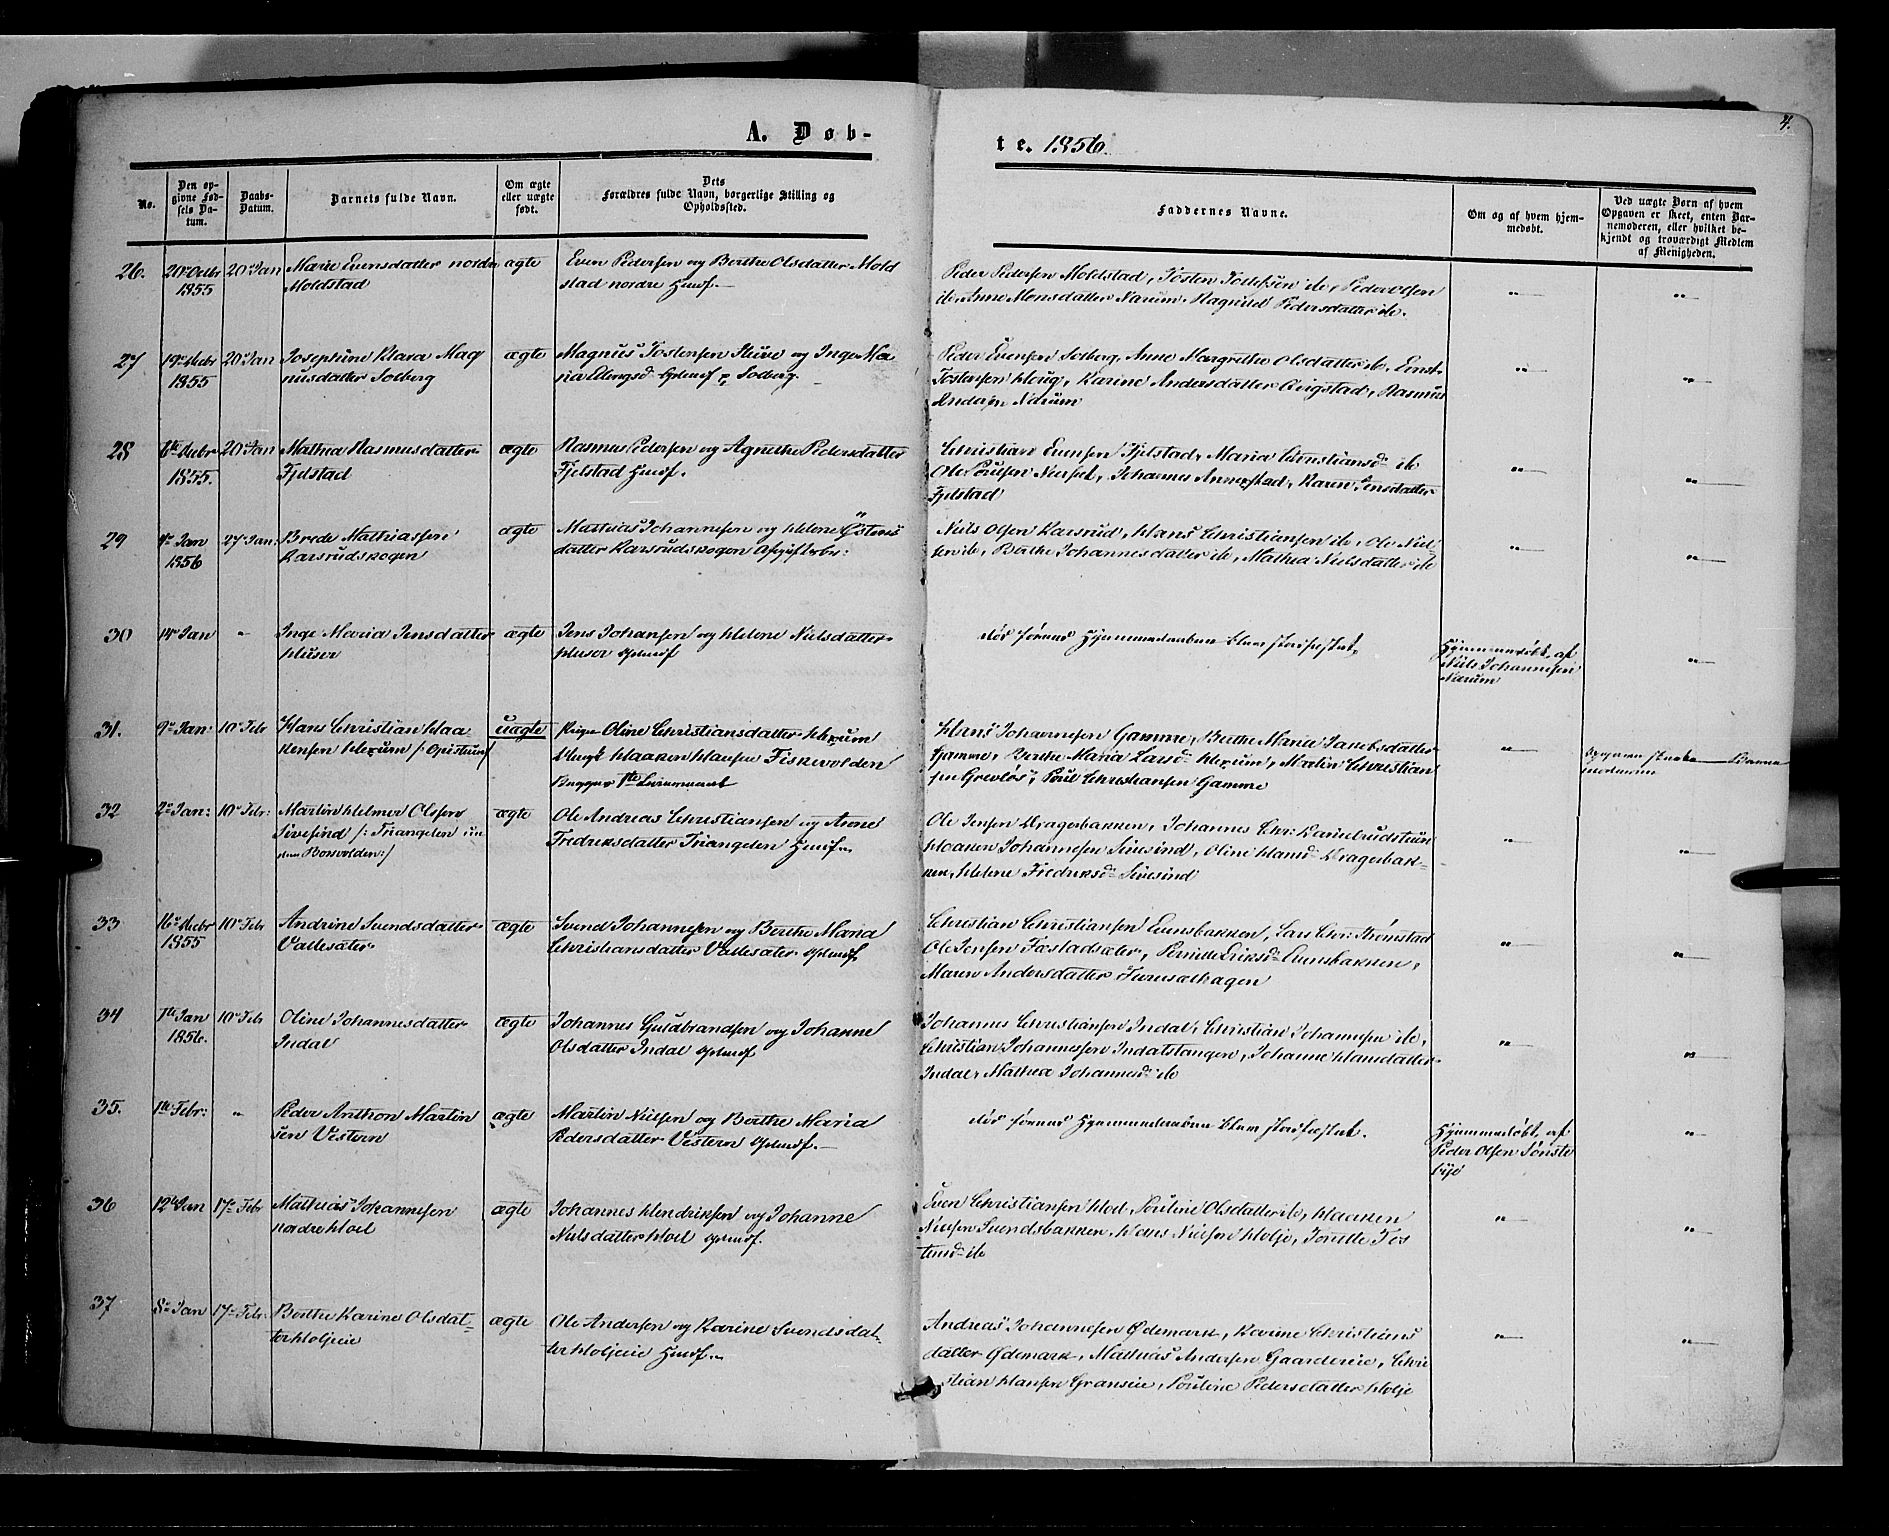 4.
A. Døb-
te. 1856.
No.
Den op-
givne Fød-
sels Da-
tum.
Daabs-
Datum.
Barnets fulde Navn.
Om ægte
eller uægte
født.
Dets
Forældres fulde Navn, borgerlige Stilling og
Opholdssted.
Faddernes Navne.
Om og af hvem hjem-
medøbt.
Ved uægte Børn af hvem
Opgaven er skeet, enten Bar-
nemoderen, eller hvilket be-
kjendt og troværdigt Medlem
af Menigheden.
26.
20de Octbr
1855
20de Jan
Marie Evensdatter nordre
Moldstad
ægte
Even Pedersen og Berthe Olsdatter Mold
stad nordre Huusf.
Peder Pedersen Moldstad, Josten Jostensen ib, Peder Olsen
ib, Anne Monsdatter Narum, Ragnild Pedersdatter ib.
27
19de Decbr
1855
20 Jan
Josephine Klara Mag
nusdatter Solberg
ægte
Magnus Jostensen og Inge Ma
ria Ellingsd Solberg
Peder Evensen Solberg, Anne Margrethe Olsdatter ib, Ernst
Jostensen Houg, Karine Andersdatter Qvigstad, Rasmus
Andersen Narum
28
6te Decbr
1855.
20 Jan
Mathea Rasmusdatter
Fjelstad
ægte
Rasmus Pedersen og Agnethe Pedersdatter
Fjelstad Huusf.
Christian Evensen Fjelstad, Maria Christiansd ib
Ole Poulsen, Johannes Annexstad, Karen Jensdatter
Fjelstad
29
Jan
1856
27 Jan:
Brede Mathiassen
Karsrudskogen
ægte
Mathias Johannesen og Helene Østens
datter Karsrudskogen
Niels Olsen Karsrud, Hans Christiansen ib, Ole Niel-
sen ib, Berthe Johannesdatter ib, Mathea Nielsdatter ib
30
14de Jan
"
Inge Maria Jensdatter
Huser
ægte
Jens Johansen og Helene Nielsdatter
Huser
død førend Hjemmedaaben blev stadfæstet.
Hjemmedøbt af
Niels Johannesen
Narum
31.
9de Jan:
10de Febr
Hans Christian Haa
kensen Hexum
uægte
Pige Oline Christiansdatter Hexum
Ungk Haaken Hansen Fiskevolden
Begges 1ste Leiermaal
Hans Johannesen Gamme, Berthe Marie Jacobsdatter
Gamme, Berthe Maria Larsd Hexum, Martin Christian
sen Grevløs, Poul Christiansen Gamme
32
2de Jan:
10de Febr:
Martin Helmer Olsen
Sivesind /: Triangelen un
der Bosvolden:/
ægte
Ole Andreas Christiansen og Anne
Fredriksdatter Triangelen Huusf.
Ole Jensen Kragerbakken, Johannes Chr:
Haaken Johannesen Sivesind, Oline Hansd Kragerbak-
ken, Helene Fredriksd Sivesind
33
16de Decbr
1855
10de Febr
Andrine Svendsdatter
Vallesæter
ægte
Svend Johannesen og Berthe Maria
Christiansdatter Vallesæter
Christian Christiansen Evensbakken, Lars Chr: Strømstad
Ole Jensen Fastadsæter, Pernille Eriksd Evensbakken,
Maren Andersdatter Furusethagen
34
1ste Jan
1856.
10de Febr
Oline Johannesdatter
Indal
ægte
Johannes Guldbrandsen og Johanne
Olsdatter Indal
Johannes Christiansen Indal, Christian Johannesen ib,
Christian Johannessen Indalstangen, Johanne Hansdatter
Indal, Mathea Johannesd ib
35.
1ste Febr:
"
Peder Anthon Martin
sen Vestern
ægte
Martin Nielsen og Berthe Maria
Pedersdatter Vestern
død førend Hjemmedaaben blev stadfæstet.
Hjemmedøbt af
Peder Olsen Sønste
bye
36
12te Jan
17de Febr
Mathias Johannesen
nordre Hoel
ægte
Johannes Hendriksen og Johanne
Nielsdatter Hoel
Even Christiansen Hoel, Pouline Olsdatter ib, Haaken
Nielsen Svendsbakken, Hans Nielsen Holje,
ib
37
8de Jan
17de Febr.
Berthe Karine Olsdat-
ter Holjeeie
ægte
Ole Andersen og Karine Svendsdat-
ter Holjeeie Huusf.
Andreas Johannesen Ødemark, Karine Christians
datter Ødemark, Mathias Andersen Gaardereie, Chri
stian Hansen Granseie, Pouline Pedersdatter Holje